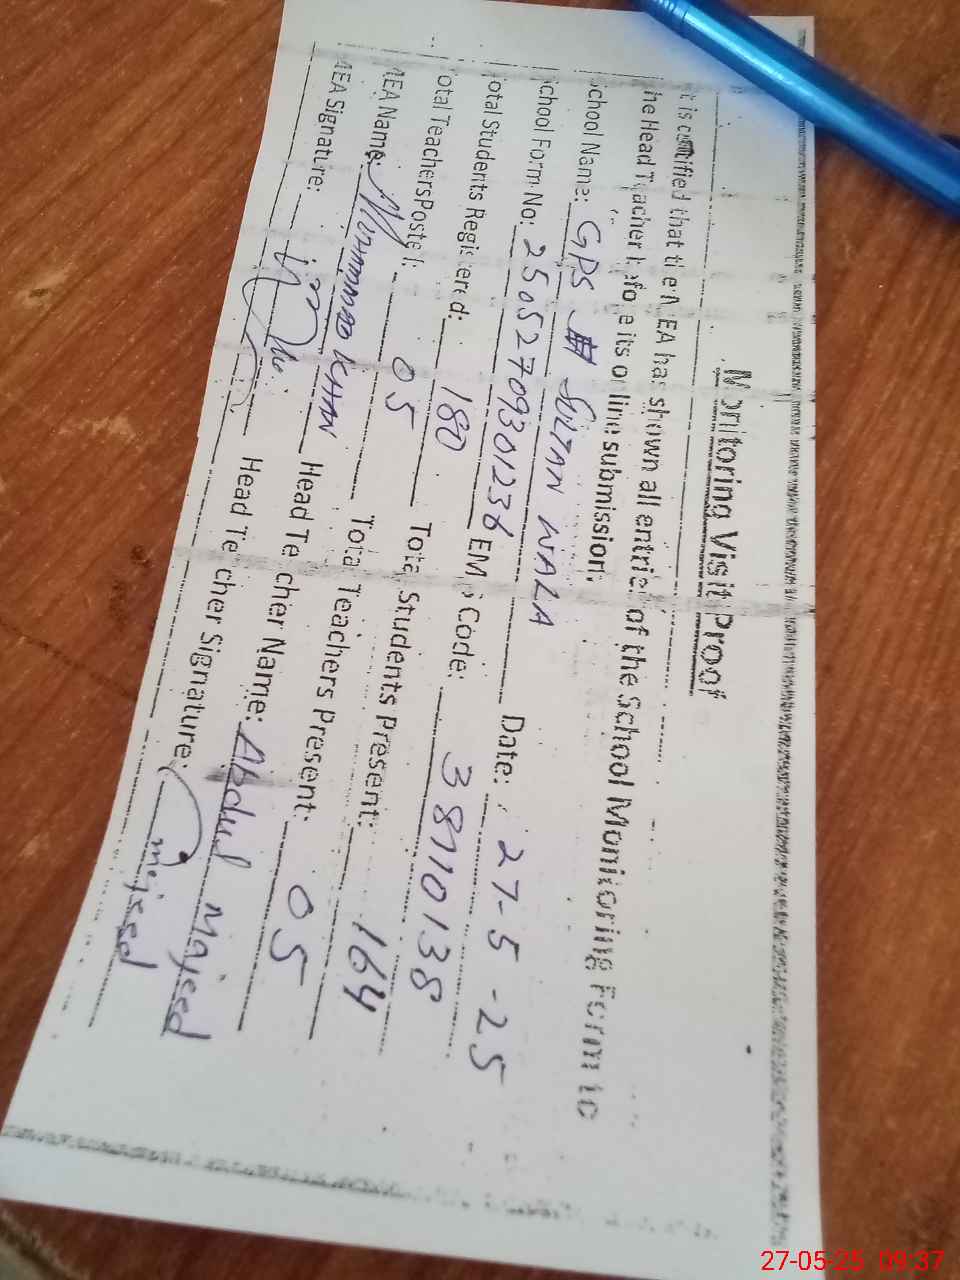 Monitoring Visit Proof
It is certified that the MEA has shown all entries of the School Monitoring Form to
the Head Teacher before its online submission.
School Name: GPS SULTAN WALA Date: 27-5-25
School Form No: 25052709301236 EMIS Code: 38710138
Total Students Registered: 180 Total Students Present: 164
Total Teachers Posted: 05 Total Teachers Present: 05
MEA Name: KHAN Head Teacher Name: Abdul Majeed
MEA Signature: Head Teacher Signature: Majeed
27-05-25 09:37